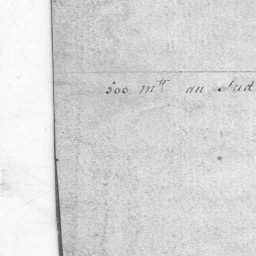 500 m.es au Sud